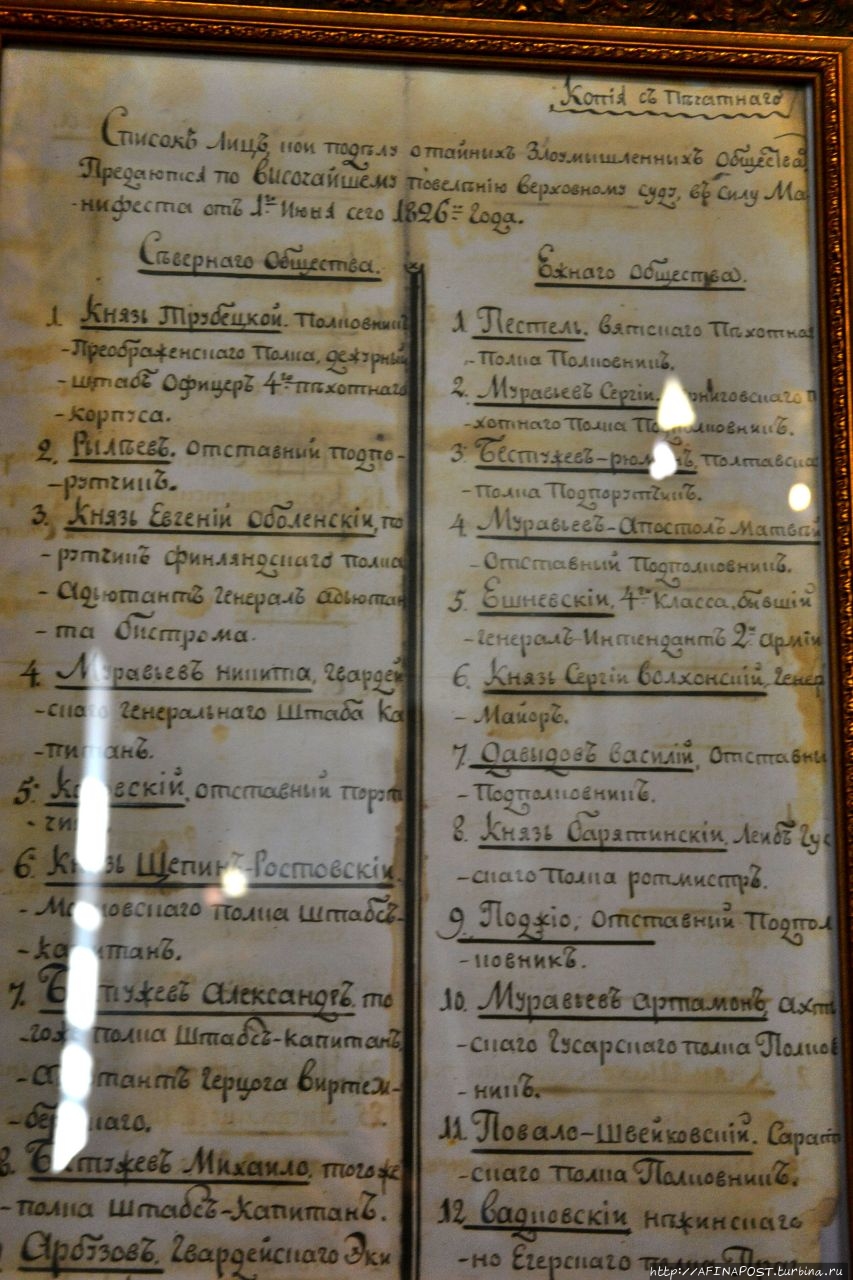 Копія съ Печатнаго
Списокъ Лицъ, кои подѣлу о тайныхъ Злоумышленныхъ Общества
Предаются по высочайшему повелѣнію верховному суду, въ силу Ма-
-нифеста отъ 1го Июня сего 1826го Года.
Сѣвернаго Общества.
1 Князь Трубецкой. Полковникъ
-Преображенскаго Полка, дежурный
-штабъ Офицеръ 4го пѣхотнаго
-корпуса.
2. Рылѣевъ. Отставный подпо-
-ручикъ.
3. Князь Евгеній Оболенскіи, по
-ручикъ финляндскаго полка
-Адъютантъ Генералъ адъютан
-та Бистрома.
4. Муравьевъ никита, Гвардей
-скаго Генеральнаго Штаба Ка
-питанъ.
5. отставный поруч
6. Князь Щепинъ-Ростовскіи.
-Московскаго полка Штабсъ-
-капитанъ.
7. Бестужевъ Александръ. то
-гоже полка Штабсъ-капитанъ,
-Адъютантъ Герцога виртем-
-бергскаго.
8. Бестужевъ Михаило, тогоже
-полка Штабсъ-Капитанъ.
Арбузовъ. Гвардейскаго Эки
Южнаго Общества.
1 Пестель. вятскаго Пѣхотна
-полка Полковникъ.
2. Муравьевъ Сергіи. Черниговскаго п
-хотнаго Полка Подполковникъ.
3. Бестужев-рюминъ, Полтавска
-полка Подпоручикъ.
4 Муравьев-Апостолъ Матвѣй
-Отставный Подполковникъ.
5. Юшневскіи, 4го Класса, бывшій
-генералъ-Интендантъ 2й арміи
6. Князь Сергіи волхонскій, Генер
-Майоръ.
7. Давыдовъ василій, Отставны
-Подполковникъ.
8. Князь барятинскіи, Леибъ Гус
-скаго Полка ротмистръ.
9. Поджіо, Отставный Подпол
-ковникъ.
10. Муравьевъ артамонъ, ахт
-скаго Гусарскаго полка Полков
-никъ.
11. Повало-Швейковскій. Сарат
-скаго полка Полковникъ.
12. вадковскіи нѣжинскаго
-но Егерскаго
http://AFINAPOST.turbina.ru